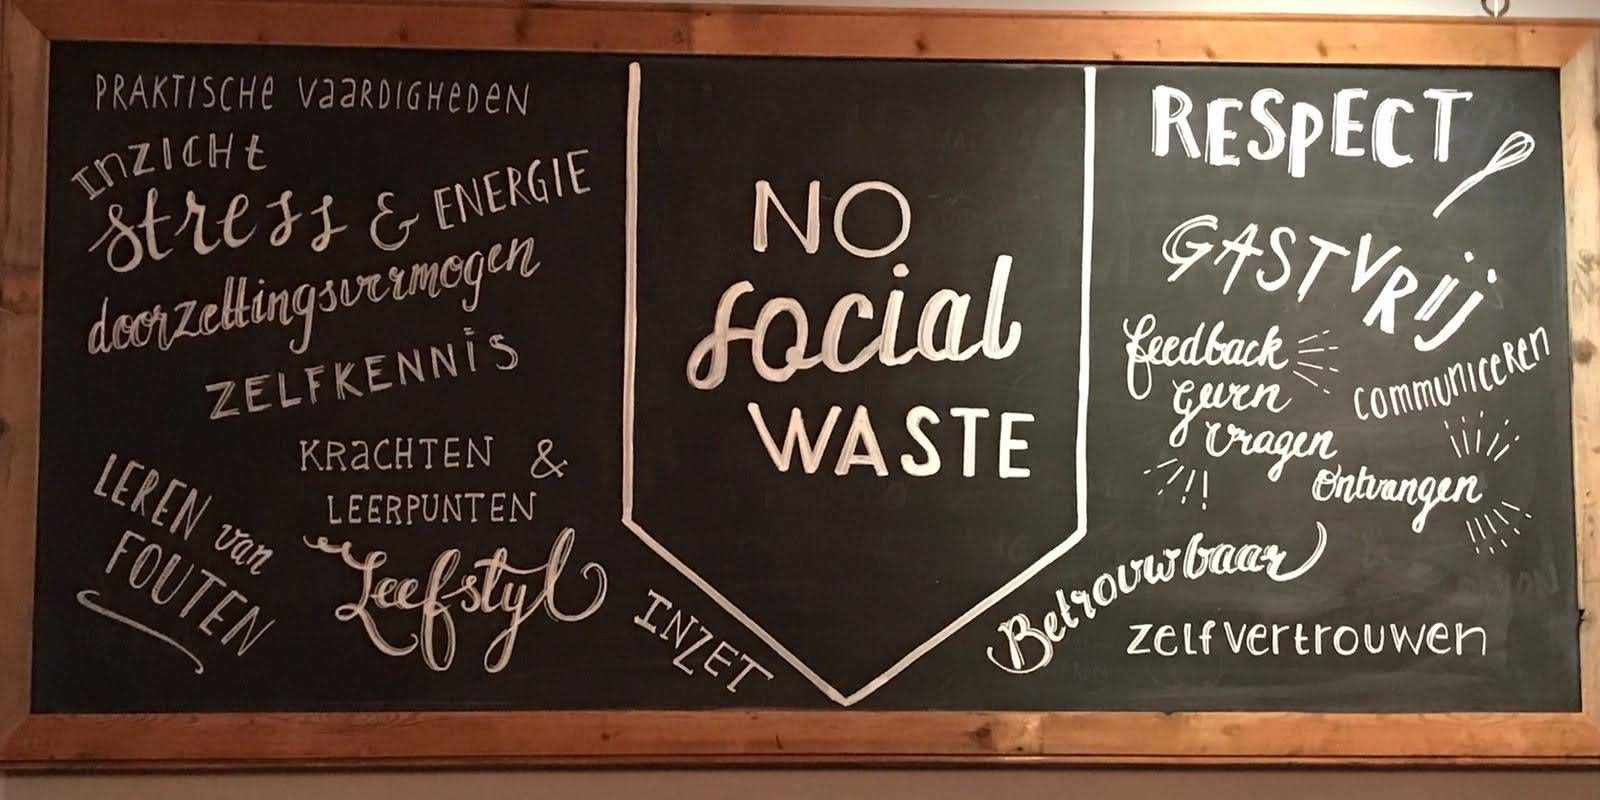 PRAKTISCHE VAARDIGHEDEN
INZICHT
stress & ENERGIE
doorzettingsvermogen
ZELFKENNIS
KRACHTEN &
LEERPUNTEN
LEREN van
FOUTEN
Leefstyl
INZET
NO
social
WASTE
RESPECT
GASTVRIJ
feedback
geven
vragen
ontvangen
communiceren
Betrouwbaar
zelfvertrouwen